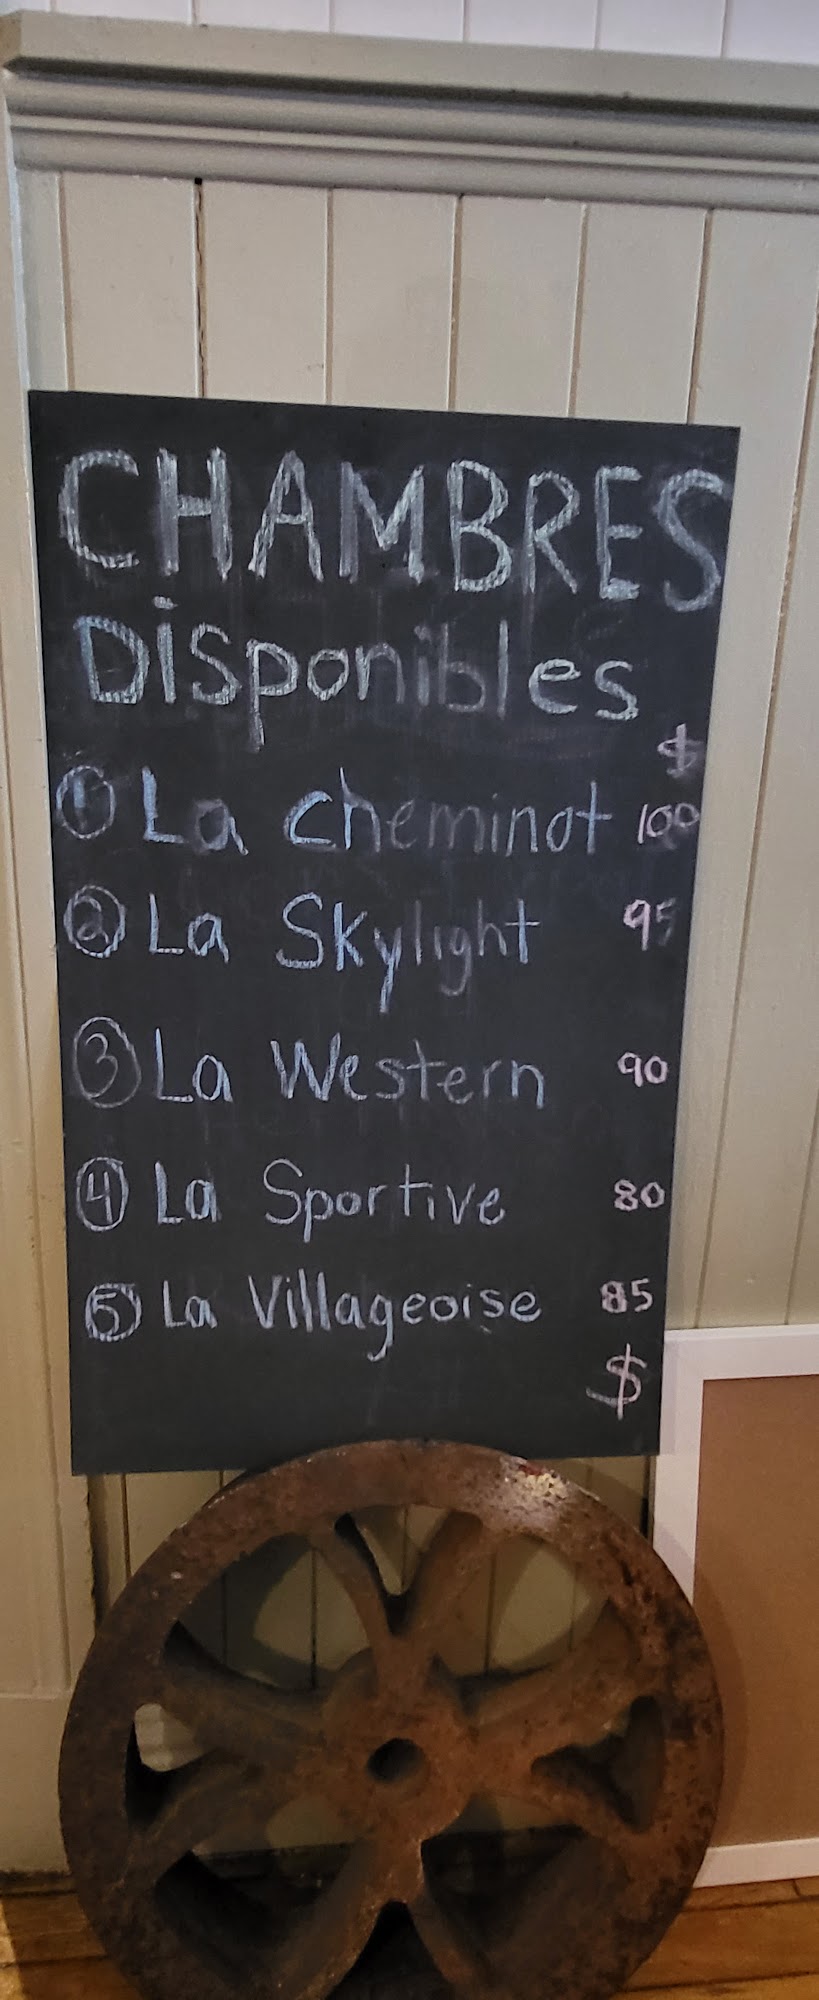 CHAMBRES
Disponibles
$
① La cheminot 100
② La Skylight 95
③ La Western 90
④ La Sportive 80
⑤ La Villageoise 85
$